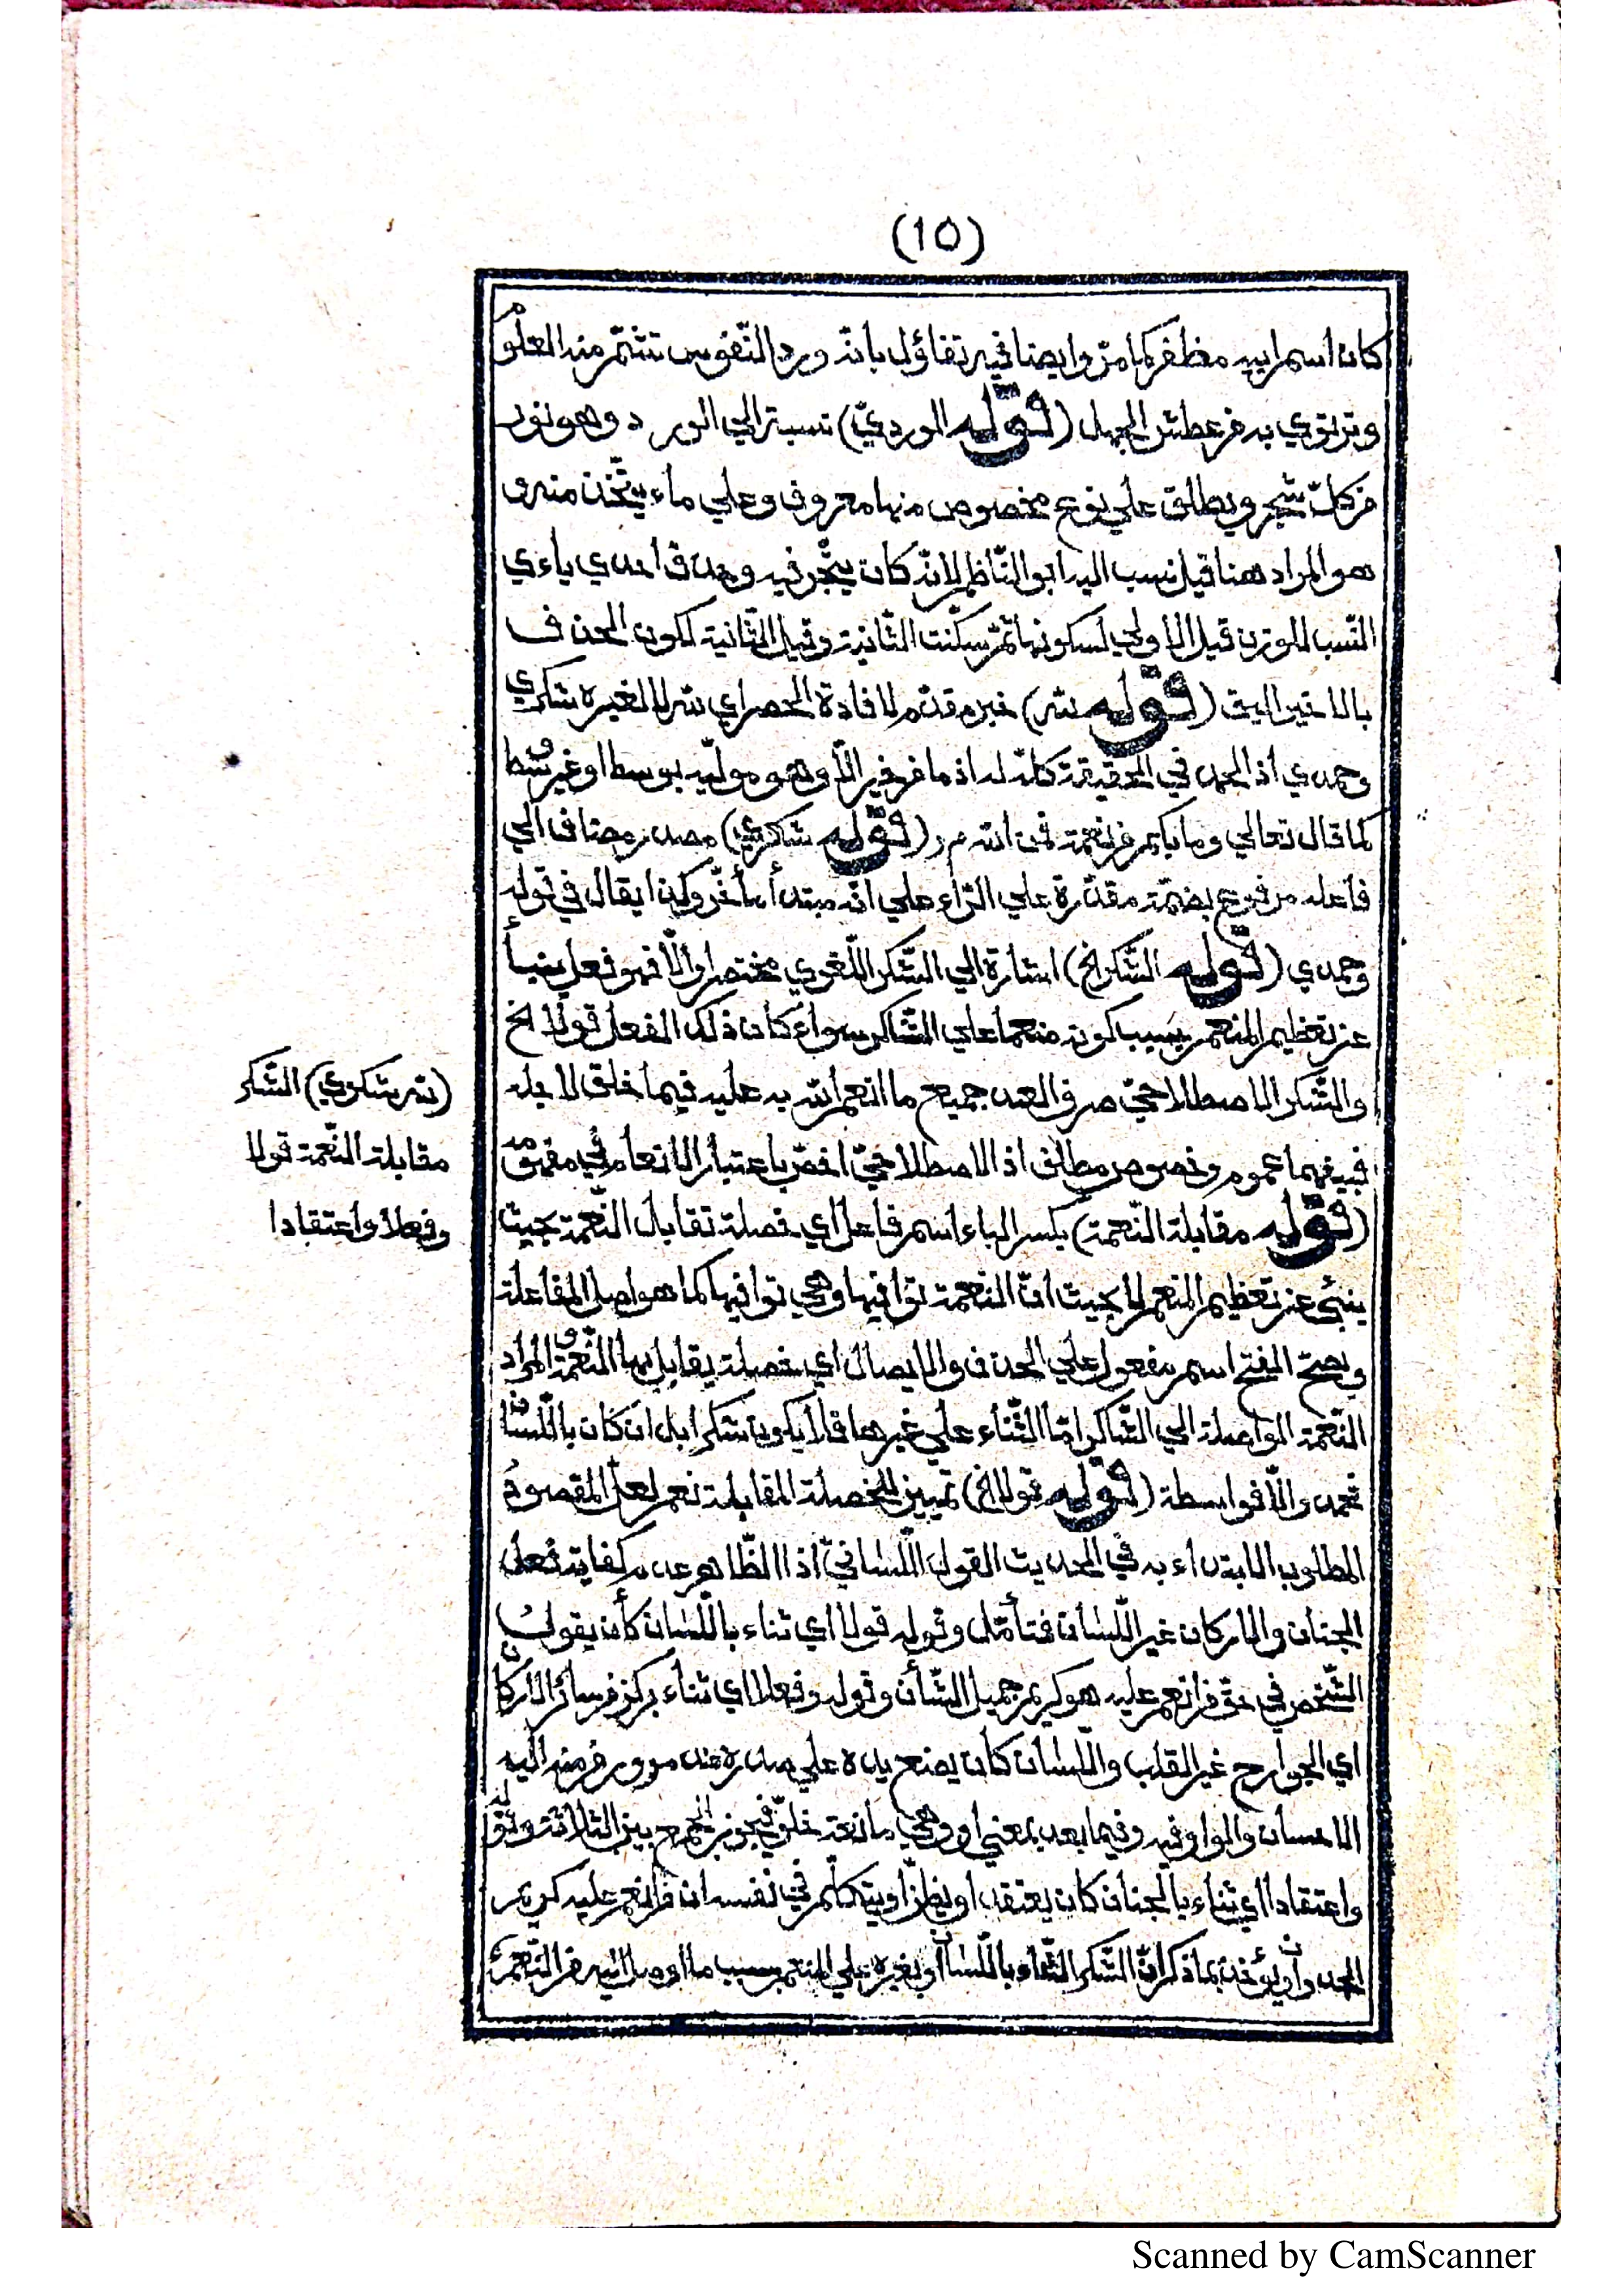 (10)
كان اسم ابيه مظفر كما مرّ وايضا فيه تفاؤل بانّه ورد النّفوس تشمّ منه العلوم
وترتوي به من عطش الجهل (قوله الورديّ) نسبة الي الورد وهو نور
من كلّ شجر ويطلق علي نوع مخصوص منها معروف وعلي ماء يتّخذ منه و
هو المراد هنا قيل نسب اليه ابو النّاظم لانّه كان يتّجر فيه وحذف احدي ياءي
النّسب للوزن قيل الاولي لسكونها ثمّ سكنت الثّانية وقيل الثّانية لكون الحذف
بالاخير اليق (قوله لله) خبر مقدّم لافادة الحصر اي لله لا لغيره شكري
وحمدي اذ الحمد في الحقيقة كلّه له اذ ما من خير الّا وهو موليه بوسط او غير وسط
كما قال تعالي وما بكم من نعمة فمن الله م ر (قوله شكري) مصدر مضاف الي
فاعله مرفوع بضمّة مقدّرة علي الرّاء علي انّه مبتدأ مأخّر وكذا يقال في قوله
وحمدي (قوله الشّكر الخ) اشارة الي الشّكر اللّغوي مختصرا والّا فهو فعل ينبأ
عن تعظيم المنعم بسبب كونه منعما علي الشّاكر سواء كان ذلك الفعل قولا الخ
والشّكر الاصطلاحيّ صرف العبد جميع ما انعم الله به عليه فيما خلق لاجله
فبينهما عموم وخصوص مطلق اذ الاصطلاحيّ اخصّ باعتبار الانعام في مفهومه
(قوله مقابلة النّعمة) بكسر الباء اسم فاعل اي خصلة تقابل النّعمة بحيث
ينبئ عن تعظيم المنعم لا بحيث انّ النعمة توافيها وهي توافيها كما هو اصل المفاعلة
ويصحّ الفتح اسم مفعول علي الحذف والايصال اي خصلة يقابل بها النّعمة والمراد
النّعمة الواصلة الي الشّاكر امّا الثّناء علي غيرها فلا يكون شكرا بل ان كان باللّسان
فحمد والّا فواسطة (قوله قولا الخ) تمييز للخصلة المقابلة نعم لعلّ المقصود
المطلوب الابتداء به في الحديث القول اللّسانيّ اذ الظّاهر عدم كفاية فعل
الجنان والاركان غير اللّسان فتأمّل وقوله قولا اي ثناء باللّسان كأن يقول
الشّخص في حقّ من انعم عليه هو كريم جميل الشّأن وقوله وفعلا اي ثناء بركن من سائر الاركان
اي الجوارح غير القلب واللّسان كأن يضع يده علي صدره عند مرور من منه اليه
الاحسان والواو فيه وفيما بعد بمعني او وهي مانعة خلوّ فيجوز الجمع بين الثلاثة وقوله
واعتقادا اي ثناء بالجنان كان يعتقد او يظنّ او يتكلّم في نفسه ان من انعم عليه كريم
الجد وان يؤخذ بما ذكر انّ الشّكر الثّناء باللّسان او بغيره علي المنعم بسبب ما اوصل اليه من النّعمة
(لله شكري) الشّكر
مقابلة النّعمة قولا
وفعلا واعتقادا
Scanned by CamScanner